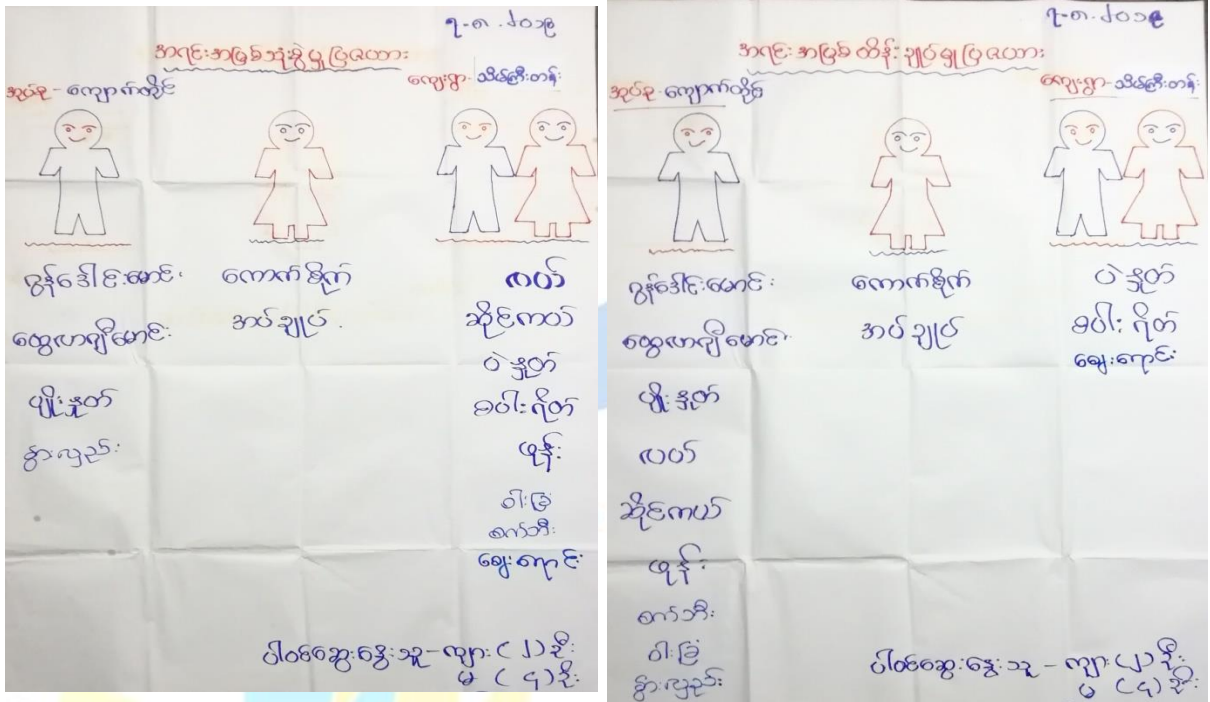 ၇-၈-၂၀၁၉
အရင်းအမြစ်သုံးစွဲမှုပြဇယား
အုပ်စု - ကျောက်တိုင်
ကျေးရွာ - သိမ်ကြီးတန်း
ဂွန်ဒေါင်းမောင်း
ထွေလာဂျီမောင်း
ပျိုးနှုတ်
နွားလှည်း
ကောက်စိုက်
အပ်ချုပ်
လယ်
ဆိုင်ကယ်
ပဲနှုတ်
စပါးရိတ်
ဖုန်း
ဝါးခြံ
စက်ဘီး
ဈေးရောင်း
ပါဝင်ဆွေးနွေးသူ - ကျား (၂) ဦး
မ (၄) ဦး
၇-၈-၂၀၁၉
အရင်းအမြစ်ထိန်းချုပ်မှုပြဇယား
အုပ်စု - ကျောက်တိုင်
ကျေးရွာ - သိမ်ကြီးတန်း
ဂွန်ဒေါင်းမောင်း
ထွေလာဂျီမောင်း
ပျိုးနှုတ်
လယ်
ဆိုင်ကယ်
ဖုန်း
စက်ဘီး
ဝါးခြံ
နွားလှည်း
ကောက်စိုက်
အပ်ချုပ်
ပဲနှုတ်
စပါးရိတ်
ဈေးရောင်း
ပါဝင်ဆွေးနွေးသူ - ကျား (၂) ဦး
မ (၄) ဦး